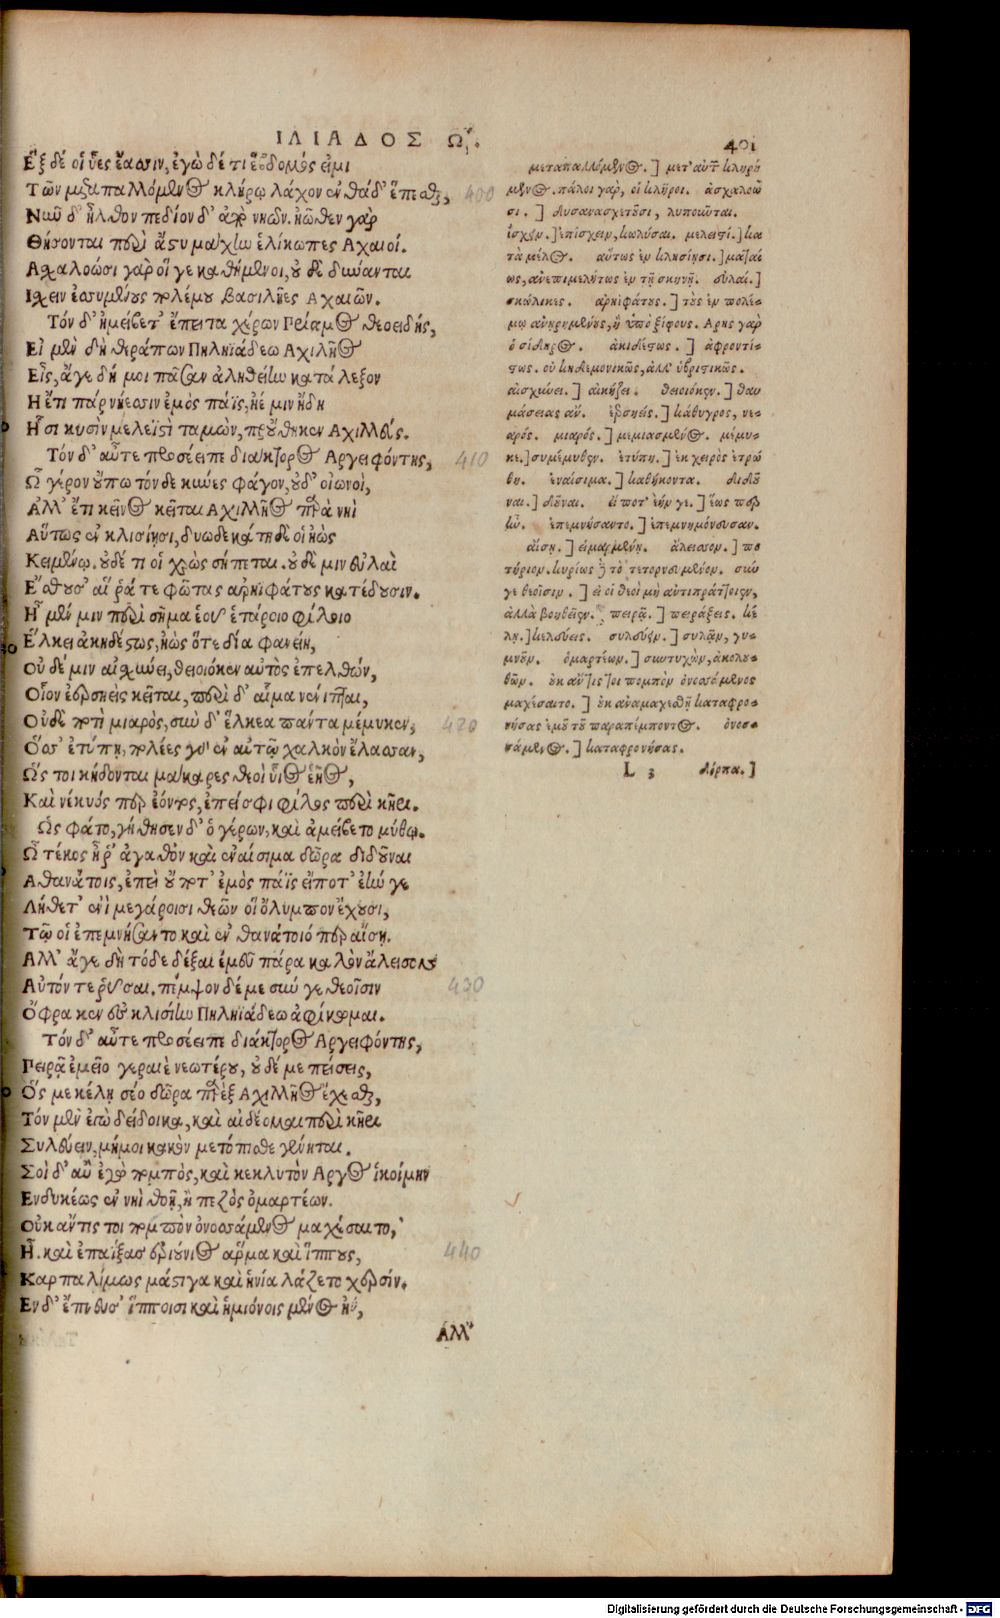 ΙΛΙΑΔΟΣ Ω.
401
Ἓξ δέ οἱ ὗες ἔασιν, ἐγὼ δέ τι ἕβδομός εἰμι
Τῶν μεταπαλλόμενος κλήρῳ λάχον ἐνθάδ' ἕπεσθαι,
400
Νῦν δ' ἦλθον πεδίον δ' ἀπὸ νηῶν. ἠῶθεν γὰρ
Θήσονται περὶ ἄστυ μάχην ἑλίκωπες Αχαιοί.
Ασχαλοώσι γὰρ οἵ γε καθήμενοι, οὐδὲ δύνανται
Ισχειν ἐσσυμένους πολέμου βασιλῆες Αχαιῶν.
Τόν δ' ἠμείβετ' ἔπειτα γέρων Πρίαμος θεοειδής,
Εἰ μὲν δὴ θεράπων Πηληϊάδεω Αχιλῆος
Εἶς, ἄγε δή μοι πᾶσαν ἀληθείην κατάλεξον
Η ἔτι πάρ νήεσσιν ἐμὸς πάϊς, ἠέ μιν ἤδη
Ηῇσι κυσὶν μελεϊστὶ ταμὼν, προύθηκεν Αχιλλεύς.
Τόν δ' αὖτε προσέειπε διάκτορος Αργειφόντης,
410
Ω γέρον οὔπω τόνδε κύνες φάγον, οὐδ' οἰωνοὶ,
Αλλ' ἔτι κεῖνος κεῖται Αχιλλῆος παρὰ νηῒ
Αὔτως ἐν κλισίησι, δυωδεκάτη δέ οἱ ἠὼς
Κειμένῳ. οὐδέ τι οἱ χρὼς σήπεται. οὐδέ μιν εὐλαὶ
Εσθουσ' αἵ ῥά τε φῶτας ἀρηϊφάτους κατέδουσιν.
Η μέν μιν περὶ σῆμα ἑοῦ ἑτάροιο φίλοιο
Ἕλκει ἀκηδέστως, ἠὼς ὅτε δῖα φανείη,
Οὐδέ μιν αἰσχύνει, θειοιόκεν αὐτὸς ἐπελθών,
Οἷον ἐερσηεὶς κεῖται, περὶ δ' αἷμα νένιπται,
Οὐδὲ ποτὶ μιαρὸς, σὺν δ' ἕλκεα πάντα μέμυκεν,
420
Ὅσσ' ἐτύπη, πολέες γὰρ ἐν αὐτῷ χαλκὸν ἔλασσαν,
Ὥς τοι κήδονται μάκαρες θεοὶ υἷος ἑῆος,
Καὶ νέκυός περ ἐόντος, ἐπεί σφι φίλος περὶ κῆρι.
Ὣς φάτο, γήθησεν δ' ὁ γέρων, καὶ ἀμείβετο μύθῳ.
Ω τέκος ἦ ῥ' ἀγαθὸν καὶ ἐναίσιμα δῶρα διδοῦναι
Αθανάτοις, ἐπεὶ οὔ ποτ' ἐμὸς πάϊς εἴποτ' ἔην γε
Λήθετ' ἐνὶ μεγάροισι θεῶν οἳ ὄλυμπον ἔχουσι,
Τῷ οἱ ἐπεμνήσαντο καὶ ἐν θανάτοιό περ αἴσῃ.
Αλλ' ἄγε δὴ τόδε δέξαι ἐμεῦ πάρα καλὸν ἄλεισον
Αὐτόν τε ῥῦσαι. πέμψον δέ με σύν γε θεοῖσιν
430
Ὄφρα κεν ἐς κλισίην Πηληϊάδεω ἀφίκωμαι.
Τόν δ' αὖτε προσέειπε διάκτορος Αργειφόντης,
Πειρᾷ ἐμεῖο γεραιὲ νεωτέρου, οὐδέ με πείσεις,
Ὅς με κέλῃ σέο δῶρα παρὲξ Αχιλλῆος ἔχεσθαι,
Τόν μὲν ἐγὼ δείδοικα, καὶ αἰδέομαι περὶ κῆρι
Συλεύειν, μή μοι κακὸν μετόπισθε γένηται.
Σοὶ δ' αὖ ἐγὼ πομπὸς, καὶ κε κλυτὸν Αργος ἱκοίμην
Ενδυκέως ἐν νηῒ θοῇ, ἢ πεζὸς ὁμαρτέων.
Οὐκ ἄν τίς τοι πομπὸν ὀνοσσάμενος μαχέσαιτο,
Η. καὶ ἐπαΐξας ἐριούνιος ἅρμα καὶ ἵππους,
440
Καρπαλίμως μάστιγα καὶ ἡνία λάζετο χερσίν.
Εν δ' ἔπνευσ' ἵπποισι καὶ ἡμιόνοις μένος ἠύ,
ΑΛΛ'
μεταπαλλόμενος.] μετ' αὐτῶν κληρού
μενος. πάλοι γὰρ, οἱ κλῆροι. ἀσχαλοῶ
σι.] δυσανασχετοῦσι, λυποῦνται.
ἰσχεῖν.] ἐπίσχειν, κωλύσαι. μελεϊστί.] κα
τὰ μέλος. αὔτως ἐν κλισίησι.] ματαί
ως, ἀνεπιμελήτως ἐν τῇ σκηνῇ. εὐλαί.]
σκώλικες. ἀρηϊφάτους.] τοὺς ἐν πολέ-
μῳ ἀνῃρημένους, ἢ ὑπὸ ξίφους. Αρης γὰρ
ὁ σίδηρος. ἀκηδέστως.] ἀφροντί-
στως. οὐ κηδεμονικῶς, ἀλλ' ὑβριστικῶς.
αἰσχύνει.] αἰκίζει. θειοιόκεν.] θαυ
μάσειας ἄν. ἐερσηείς.] κάθυγρος, νε-
αρός. μιαρός.] μεμιασμένος. μέμυ-
κε.] συμέμυκεν. ἐτύπη.] ἐκ χειρὸς ἐτρώ
θη. ἐναίσιμα.] καθήκοντα. διδοῦ
ναι.] δοῦναι. εἴ ποτ' ἔην γε.] ἕως περ
ἦν. ἐπεμνήσαντο.] ἐπεμνημόνευσαν.
αἴσῃ.] εἱμαρμένῃ. ἄλεισον.] πο
τήριον. κυρίως δὲ τὸ τετορνευμένον. σύν
γε θεοῖσιν.] εἰ οἱ θεοὶ μὴ ἀντιπράττοιεν,
ἀλλὰ βοηθεῖεν. πειρᾷ.] πειράζεις. κέ
λῃ.] κελεύεις. συλεύειν.] συλᾷν, γυ-
μνοῦν. ὁμαρτέων.] συντυχὼν, ἀκολου-
θῶν. οὐκ ἄν τίς τοι πομπὸν ὀνοσσάμενος
μαχέσαιτο.] οὐκ ἂν μαχεσθῇ καταφρο-
νήσας ἐμοῦ τοῦ παραπέμποντος. ὀνοσ-
σάμενος.] καταφρονήσας.
L 3
δόρπα.]
Digitalisierung gefördert durch die Deutsche Forschungsgemeinschaft - DFG